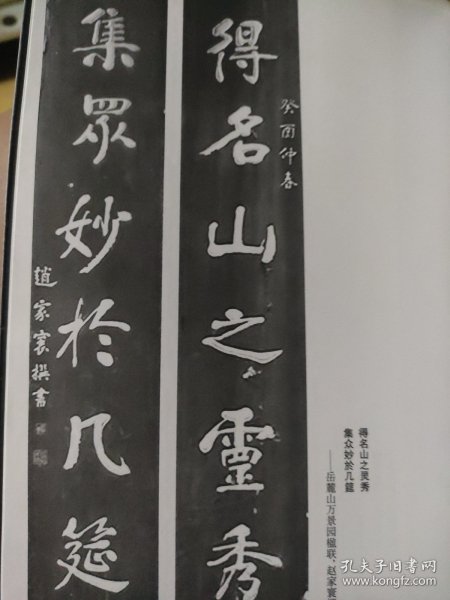 得名山之靈秀
癸酉仲春
集眾妙於几筵
趙家寰撰書
得名山之灵秀
集众妙於几筵
——岳麓山万景园楹联、赵家寰
孔夫子旧书网
www.kongfz.com